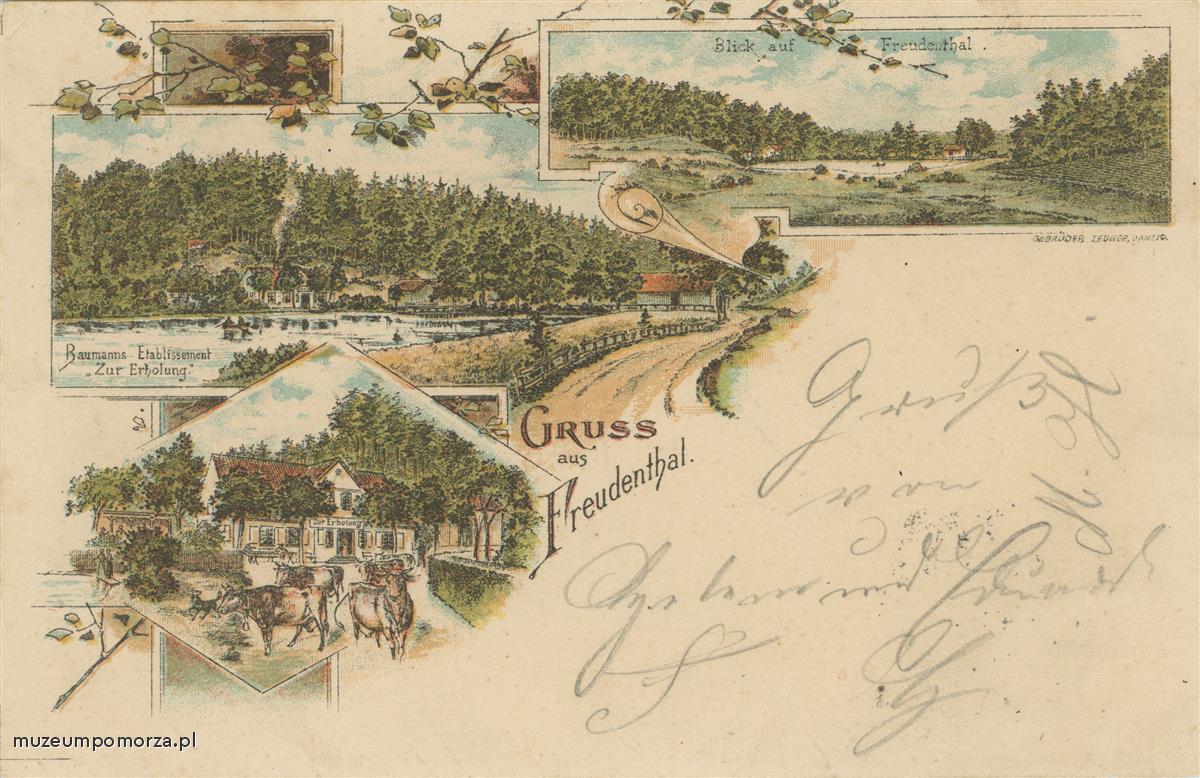 Blick auf Freudenthal.
GEBRÜDER ZEUNER, DANZIG.
Baumanns Etablissement
„Zur Erholung."
Zur Erholung
GRUSS
aus
Freudenthal.
Gruß
von
und
muzeumpomorza.pl